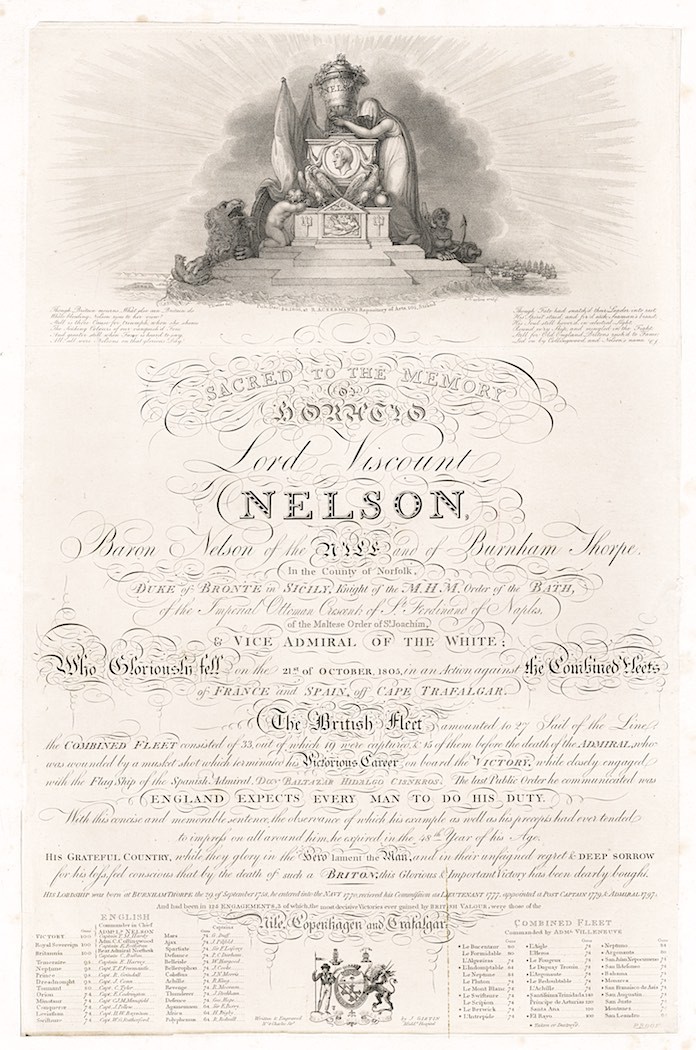 NELSON
Pub. Jan. 1806, at R. ACKERMANN'S Repository of Arts 101, Strand.
Though Britain mourns. What else can Britain do
While bleeding Nelson rises to her view?
Still is there Cause for triumph, when she shews
The shining Volumes of our conquer'd Foes
Though Fate had snatch'd their Leader into rest
His Spirit stood, and fir'd each Seaman's breast,
His Soul still hover'd in celestial Light
Led on by Collingwood, and Nelson's name
SACRED TO THE MEMORY
OF
HORATIO
Lord Viscount
NELSON,
Baron Nelson of the NILE and of Burnham Thorpe.
In the County of Norfolk,
DUKE of BRONTE in SICILY, Knight of the M.H.M. Order of the BATH,
of the Imperial Ottoman Crescent, of St. Ferdinand of Naples,
of the Maltese Order of St. Joachim,
& VICE ADMIRAL OF THE WHITE;
Who Gloriously fell on the 21st of OCTOBER, 1805, in an Action against the Combined Fleets
of FRANCE and SPAIN, off CAPE TRAFALGAR.
The British Fleet amounted to 27 Sail of the Line
the COMBINED FLEET consisted of 33, out of which 19 were captured, & 15 of them before the death of the ADMIRAL, who
was wounded by a musket shot which terminated his Victorious Career, on board the VICTORY, while closely engaged
with the Flag Ship of the Spanish Admiral, DON BALTAZAR HIDALGO CISNEROS. The last Public Order he communicated was
ENGLAND EXPECTS EVERY MAN TO DO HIS DUTY.
With this concise and memorable sentence, the observance of which his example as well as his precepts had ever tended
to impress on all around him, he expired in the 48th Year of his Age.
HIS GRATEFUL COUNTRY, while they glory in the Hero lament the Man, and in their unfeigned regret & DEEP SORROW
for his loss, feel conscious that by the death of such a BRITON, this Glorious & Important Victory has been dearly bought.
HIS LORDSHIP was born at BURNHAM THORPE the 29 of September 1758, he entered into the NAVY 1770, recieved his Commission as LIEUTENANT 1777, appointed a POST CAPTAIN 1779, & ADMIRAL 1797.
And had been in 124 ENGAGEMENTS, 3 of which, the most decisive Victories ever gained by BRITISH VALOUR, were those of the
Nile, Copenhagen and Trafalgar.
ENGLISH
Commander in Chief
ADML. NELSON
VICTORY 110 Captain T. M. Hardy
Royal Sovereign 100 John C. Collingwood
Captain E. Rotheram
Rear Admiral Northesk
Britannia 100 Capt. C. Bullen
Temeraire 98 Captain E. Harvey
Neptune 98 Capt. T. F. Freemantle
Prince 98 Capt. R. Grindall
Dreadnought 98 Capt. J. Conn
Tonnant 80 Capt. C. Tyler
Orion 74 Capt. E. Codrington
Minotaur 74 Capt. C. J. M. Mansfield
Conqueror 74 Capt. I. Pellew
Leviathan 74 Capt. H. W. Bayntun
Swiftsure 74 Capt. W. G. Rutherford
Captains
Mars 74 G. Duff
Ajax 74 J. Pilfold
Spartiate 74 Sir F. Laforey
Defiance 74 P. C. Durham
Belleisle 74 W. Hargood
Bellerophon 74 J. Cooke
Colossus 74 J. N. Morris
Achille 74 R. King
Revenge 74 R. Moorsom
Thunderer 74 J. Stockham
Defence 74 Geo. Hope
Agamemnon 64 Sir E. Berry
Africa 64 H. Digby
Polyphemus 64 R. Redmill
COMBINED FLEET
Commanded by ADML. VILLENEUVE
Guns
Le Bucentaur 80
Le Formidable 80
L'Algeziras 74
L'Indomptable 84
Le Neptune 84
Le Pluton 74
Le Mont Blanc 74
Le Swiftsure 74
Le Scipion 74
Le Berwick 74
L'Intrepide 74
L'Aigle 74
L'Heros 74
Le Fougeux 74
Le Duguay Trouin 74
L'Argonaute 74
Le Redoubtable 74
L'Achille 74
Santissima Trinidada 140
Principe de Asturias 112
Santa Ana 112
El Rayo 100
Neptuno 84
Argonauta 80
San John Nepomuceno 74
San Ildefonso 74
Bahama 74
Monarca 74
San Francisco de Asis 74
San Augustin 74
San Justo 74
Montanez 74
San Leandro 64
Taken or Destroy'd
Written & Engraved
by J. GIRTIN